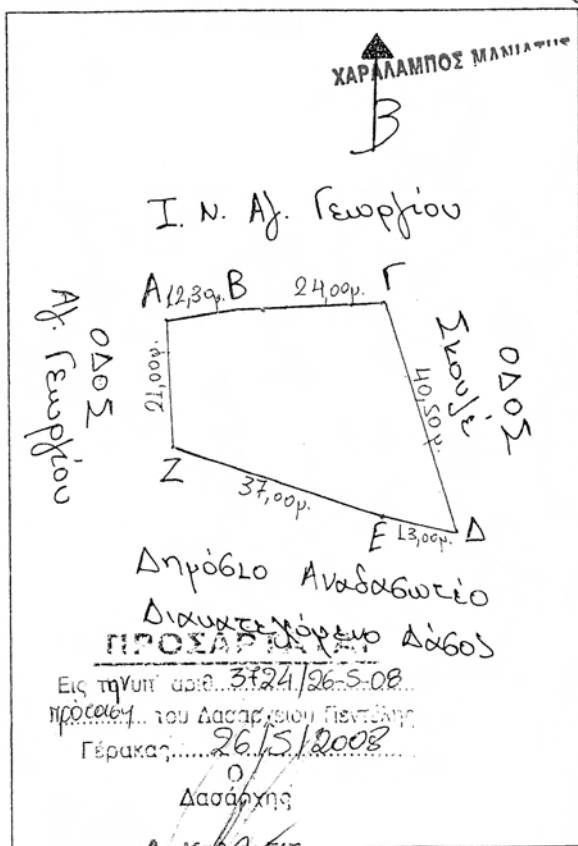 ΧΑΡΑΛΑΜΠΟΣ ΜΑΝΙΑΤΗΣ
Β
Ι. Ν. Αγ. Γεωργίου
Α 12,30μ. Β 24,00μ. Γ
ΟΔΟΣ
Αγ. Γεωργίου
21,00μ.
40,50μ.
ΟΔΟΣ
Σκουζέ
Ζ
37,00μ.
Ε 13,00μ. Δ
Δημόσιο Αναδασωτέο
Διακατεχόμενο Δάσος
ΠΡΟΣΑΡΤΑΤΑΙ
Εις την υπ' αριθ. 3724/26-5-08
πρόταση του Δασαρχείου Πεντέλης
Γέρακας 26/5/2008
Ο
Δασάρχης